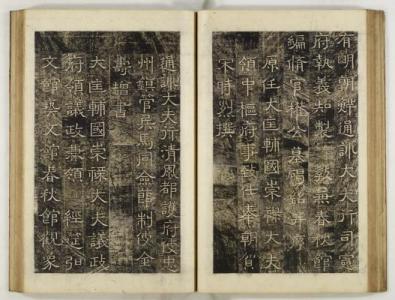 有明朝鮮通訓大夫行司憲
府執義知製 教兼春秋館
編修官權公墓碣銘并序
原任大匡輔國崇祿大夫
領中樞府事致仕奉朝賀
宋時烈撰
通訓大夫行清風都護府使忠
州鎮管兵馬同僉節制使金
學增書
大匡輔國崇祿大夫議政
府領議政兼領 經筵弘
文館藝文館春秋館觀象